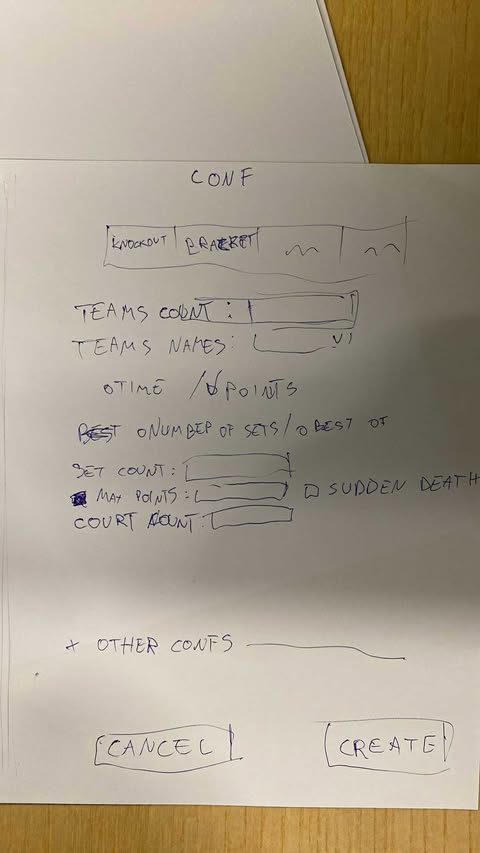 CONF
KNOCKOUT BRACKET
TEAMS COUNT :
TEAMS NAMES:
TIME / POINTS
NUMBER OF SETS / BEST OF
SET COUNT :
MAX POINTS : SUDDEN DEATH
COURT COUNT :
+ OTHER CONFS
CANCEL CREATE